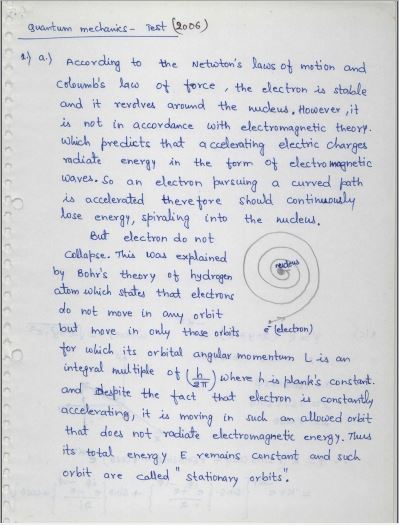 Quantum mechanics - Test (2006)
1) a.) According to the Netwton's laws of motion and
Coloumb's law of force, the electron is stable
and it revolves around the nucleus. However, it
is not in accordance with electromagnetic theory.
Which predicts that accelerating electric charges
radiate energy in the form of electromagnetic
waves. So an electron pursuing a curved path
is accelerated therefore should continuously
lose energy, spiraling into the nucleus.
But electron do not
collapse. This was explained
by Bohr's theory of hydrogen
atom which states that electrons
do not move in any orbit
but move in only those orbits
nucleus
e⁻ (electron)
for which its orbital angular momentum L is an
integral multiple of (h/2π) where h is plank's constant.
and despite the fact that electron is constantly
accelerating, it is moving in such an allowed orbit
that does not radiate electromagnetic energy. Thus
its total energy E remains constant and such
orbit are called "stationary orbits".